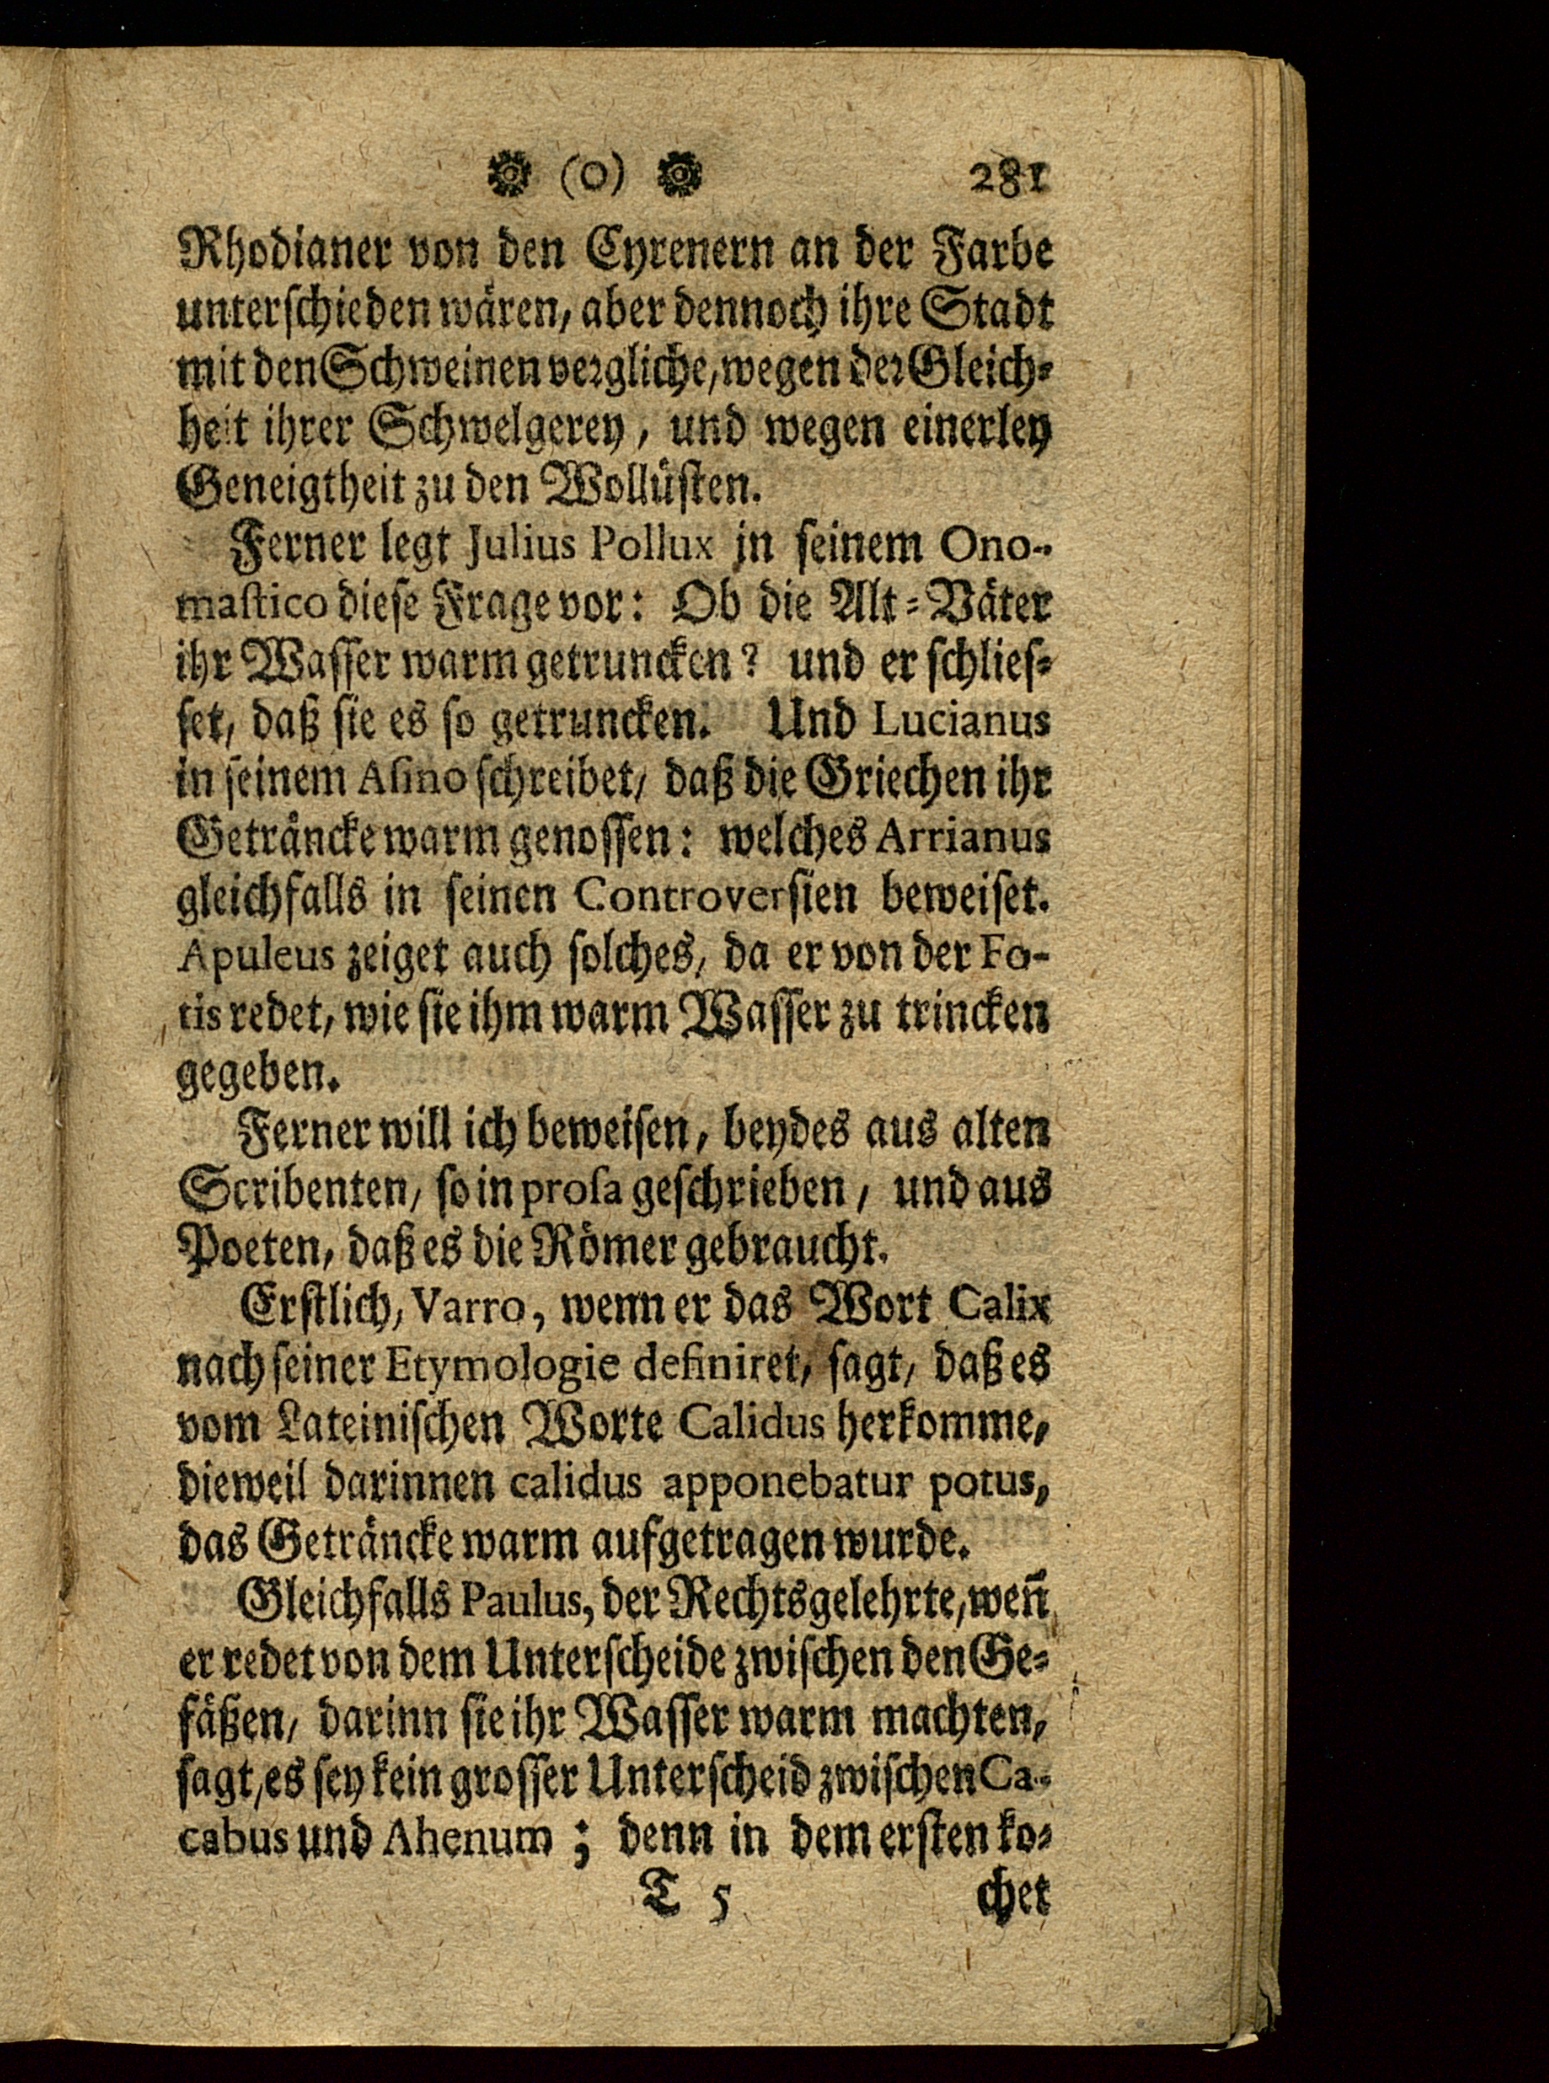 (O) 281
Rhodianer von den Cyrenern an der Farbe
unterſchieden wären, aber dennoch ihre Stadt
mit den Schweinen vergliche, wegen der Gleich⸗
heit ihrer Schwelgerey, und wegen einerley
Geneigtheit zu den Wollüſten.
Ferner legt Julius Pollux in ſeinem Ono-
maſtico dieſe Frage vor: Ob die Alt⸗Väter
ihr Waſſer warm getruncken? und er ſchlieſ⸗
ſet, daß ſie es ſo getruncken. Und Lucianus
in ſeinem Aſino ſchreibet, daß die Griechen ihr
Geträncke warm genoſſen: welches Arrianus
gleichfalls in ſeinen Controverſien beweiſet.
Apuleus zeiget auch ſolches, da er von der Fo-
tis redet, wie ſie ihm warm Waſſer zu trincken
gegeben.
Ferner will ich beweiſen, beydes aus alten
Scribenten, ſo in proſa geſchrieben, und aus
Poeten, daß es die Römer gebraucht.
Erſtlich, Varro, wenn er das Wort Calix
nach ſeiner Etymologie definiret, ſagt, daß es
vom Lateiniſchen Worte Calidus herkomme,
dieweil darinnen calidus apponebatur potus,
das Geträncke warm aufgetragen wurde.
Gleichfalls Paulus, der Rechtsgelehrte, wen̄
er redet von dem Unterſcheide zwiſchen den Ge⸗
fäßen, darinn ſie ihr Waſſer warm machten,
ſagt, es ſey kein groſſer Unterſcheid zwiſchen Ca-
cabus und Ahenum; denn in dem erſten ko⸗
T 5 chet